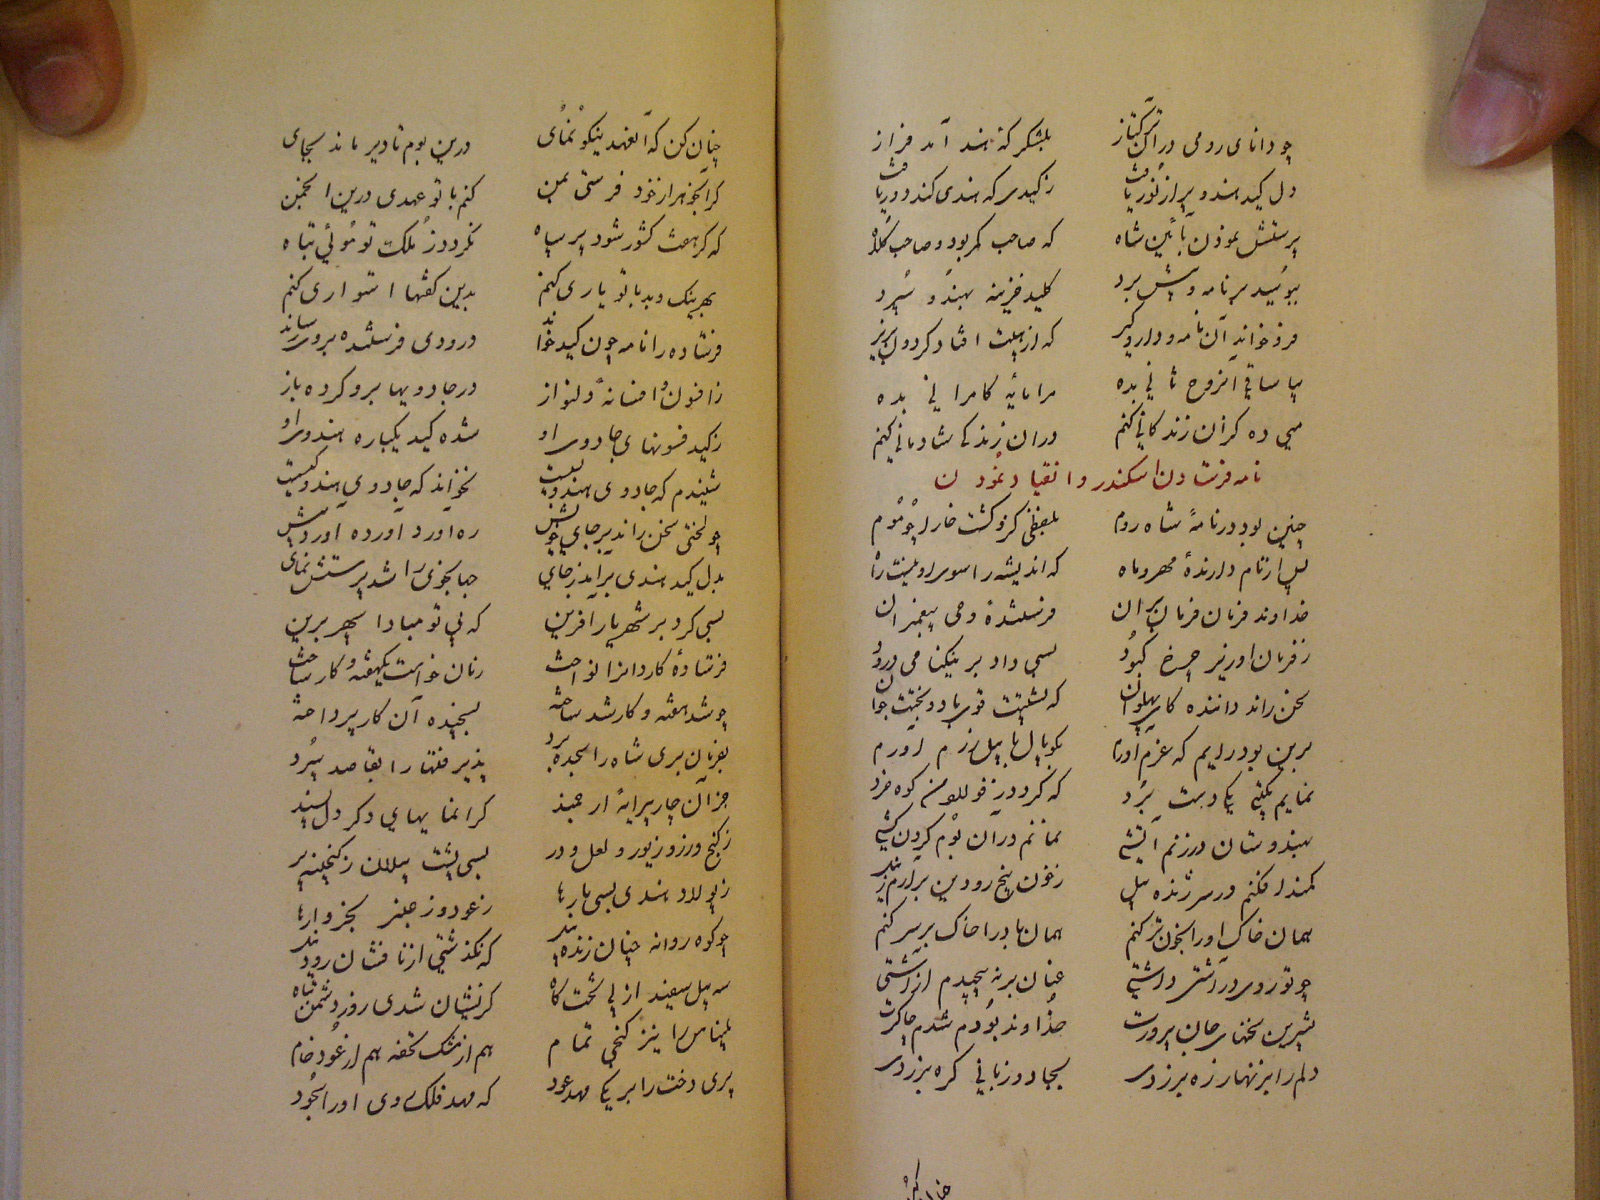 چو دانای رومی در آن ترکتاز بلشکر که هند آمد فراز
دل کید هندو پر از نور یافت ز کیدی که هندی کند دور یافت
پرستش نمودن بآئین شاه که صاحب کمر بود و صاحب کلاه
ببوسید بر نامه و پیش برد کلید خزینه بهندو سپرد
فرو خواند آن نامه را دبیر
بیا ساقی آن روح ثانی بده مرا مایهٔ کامرانی بده
می ده کزان زندگانی کنم در آن زندگی شادمانی کنم
نامه فرستادن اسکندر و انقیاد نمودن
چنین بود در نامهٔ شاه روم بلفظی کزو گشت خارا چو موم
پس از نام دارندهٔ مهر و ماه که اندیشه را سوی او نیست راه
خداوند فرمان فرمان بران فرستندهٔ وحی پیغمبران
ز فرمان او زیر چرخ کبود بسی داد بر نیکنامی درود
سخن راند داننده کای پهلوان که پشتت قوی باد و بختت جوان
برین بودرایم که عزم آورم بکوپال با پیل رزم آورم
نمایم بگیتی یکی دست برد که گردد ز کوه خرد
بهندوستان در زنم آتشی نمانم در آن بوم گردن کشی
کمند افکنم در سر ژنده پیل ز خون پنج رود
همان خاک او را بخون تر کنم همان باد را خاک بر سر کنم
چو تو روی در آشتی داشتی عنان بر نه پیچیدم از آشتی
بشیرین سخنهای جان پرورت خداوند بودم شدم چاکرت
دلم را بزنهار زه بر زدی بجادو زبانی گره بر زدی
چنان کن که آن عهد نیکو نمای درین بوم تا دیر ماند بجای
گر آن چار گوهر فرستی بمن کنم با تو عهدی درین انجمن
که گر هفت کشور شود پر سپاه نگردد ز ملک تو موئی تباه
بهر نیک و بد با تو یاری کنم بدین گفتها استواری کنم
فرستاده را نامه چون کید خواند درودی فرستنده بر وی رساند
ز افسون و افسانهٔ دلنواز در جادویها برو کرده باز
ز کید فسونهای جادوی او شده کید یکباره هندوی او
شنیدم که جادوی هندو بسیست نخواند که جادوی هندو کیست
چو لختی سخن راند بر جای خویش ره آورد آورده آورد پیش
دل کید هندی برآمد ز جای جهانجوی را شد پرستش نمای
بسی کرد بر شهریار آفرین که بی تو مبادا سپهر برین
فرستادهٔ کاردان را نواخت زمان خواست یکهفته و کار ساخت
چو شد هفته و کار شد ساخته بسیجنده آن کار پرداخته
بفرمان بری شاه را سجده برد پذیرفتها را بقاصد سپرد
جز آن چار پیرایهٔ ارجمند گرانمایهای دگر دل پسند
ز گنج و زر و زیور و لعل و در بسی پشت پیلان ز گنجینه پر
ز پولاد هندی بسی بارها ز عود و ز عنبر بخروارها
چو کوه روانه چنان ژنده پیل که نگذشتی از نافشان رود نیل
سه پیل سفید از پی تخت گاه کزیشان شدی روز دشمن سیاه
بلیناس را نیز گنجی تمام هم از مشک تحفه هم از عود خام
پری دخت را بر یکی مهد عود که مهد فلک وی او را سجود